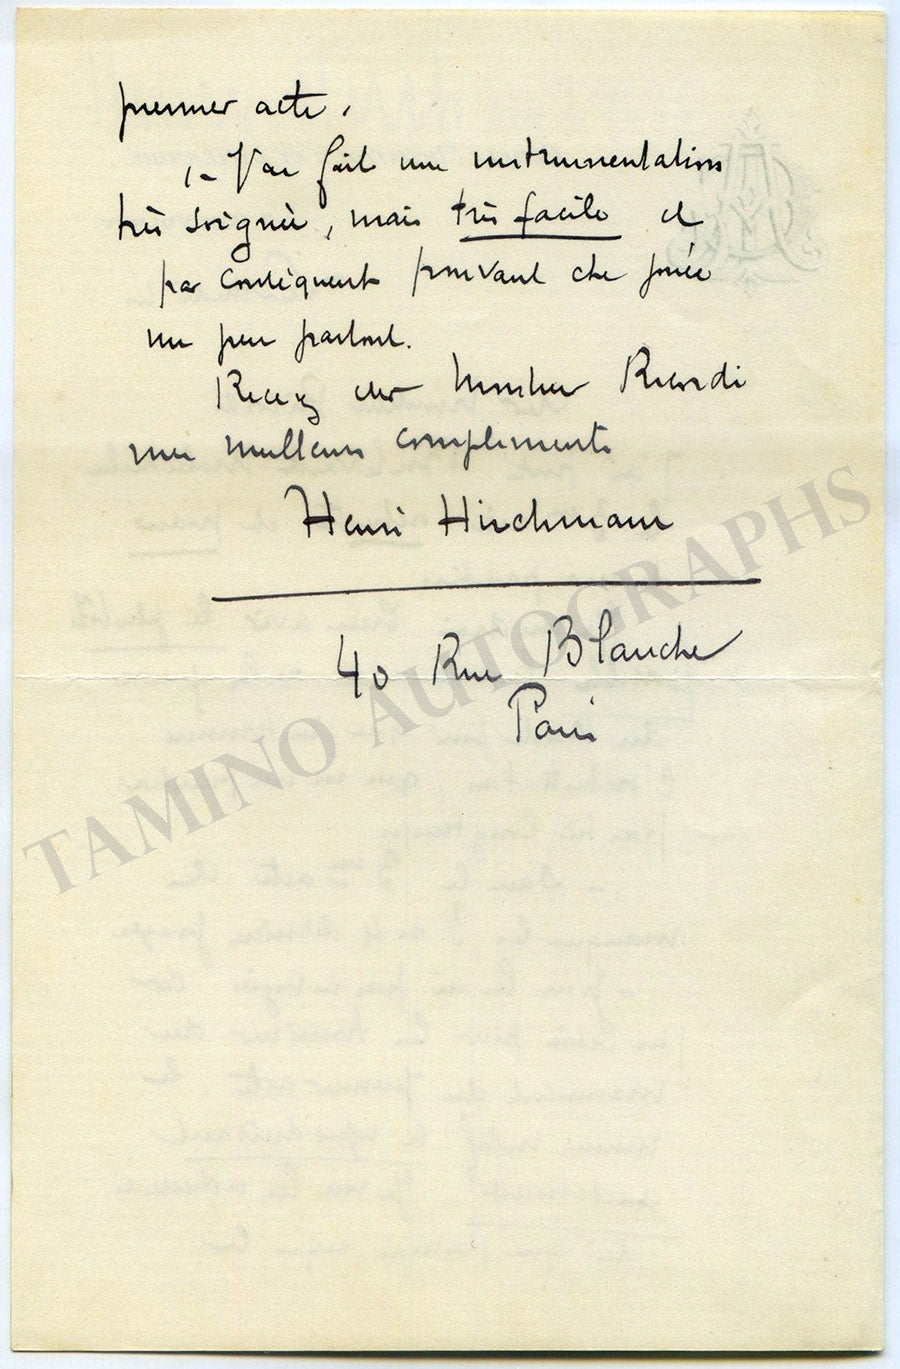 premier acte.
J'ai fait une instrumentation
très soignée, mais très facile et
par conséquent pouvant être jouée
un peu partout.
Recevez cher Monsieur Ricordi
mes meilleurs compliments
Henri Hirchmann
40 Rue Blanche
Paris
TAMINO AUTOGRAPHS